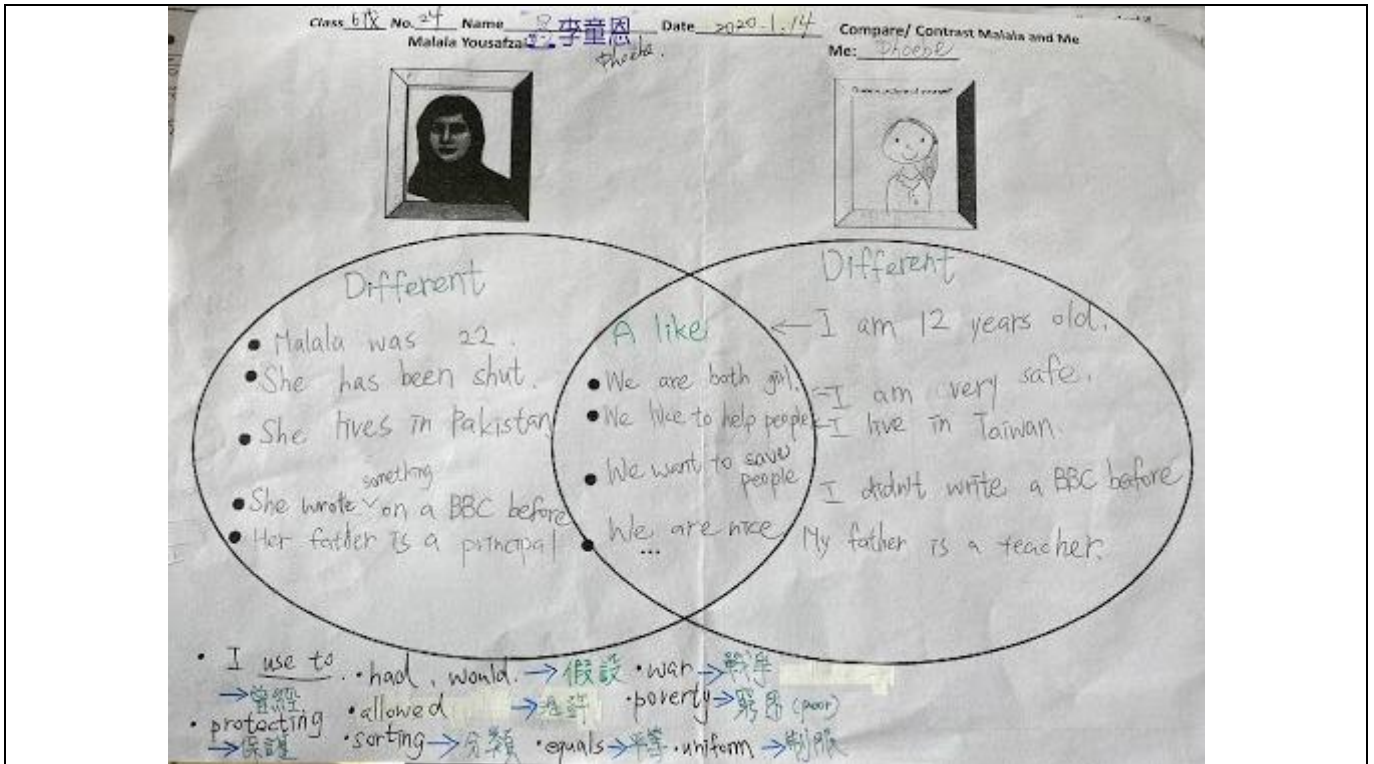 Class 6慢 No. 24 Name 李童恩 Date 2020.1.14 Compare/ Contrast Malala and Me
Malala Yousafzai Phoebe. Me: Phoebe
Different
• Malala was 22.
• She has been shut.
• She lives in Pakistan
something
• She wrote ˅ on a BBC before
• Her father is a principal
A like
• We are both girl.
• We like to help people
• We want to save
people
• We are nice
...
Different
← I am 12 years old.
← I am very safe.
← I live in Taiwan.
I didn't write a BBC before
My father is a teacher.
• I use to. • had, would. → 假設 • war → 戰爭
→ 曾經 • allowed → 允許 • poverty → 窮困 (poor)
• protecting
→ 保護 • sorting → 分類 • equals → 平等 • uniform → 制服